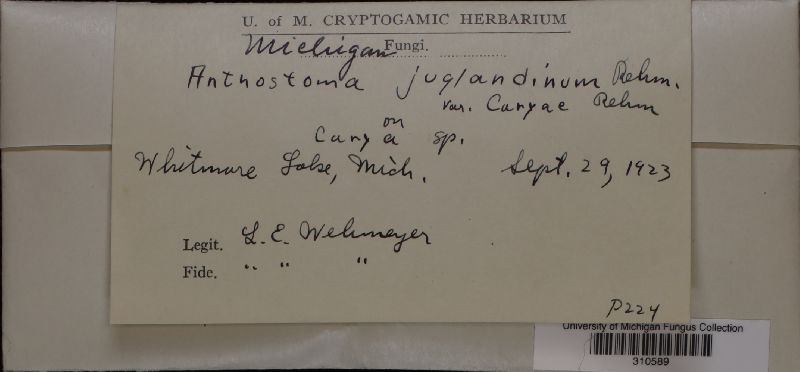 U. of M. CRYPTOGAMIC HERBARIUM
Michigan Fungi.
Anthostoma juglandinum Rehm.
var. Caryae Rehm
on
Carya sp.
Whitmore Lake, Mich. Sept. 29, 1923
Legit. L. E. Wehmeyer
Fide. " " "
P224
University of Michigan Fungus Collection
310589